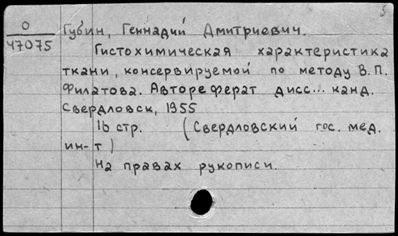 5
О
47075
Губин, Геннадий Дмитриевич.
Гистохимическая характеристика
ткани, консервируемой по методу В.П.
Филатова. Автореферат дисс... канд.
Свердловск, 1955
16 стр. (Свердловский гос. мед.
ин-т)
На правах рукописи.